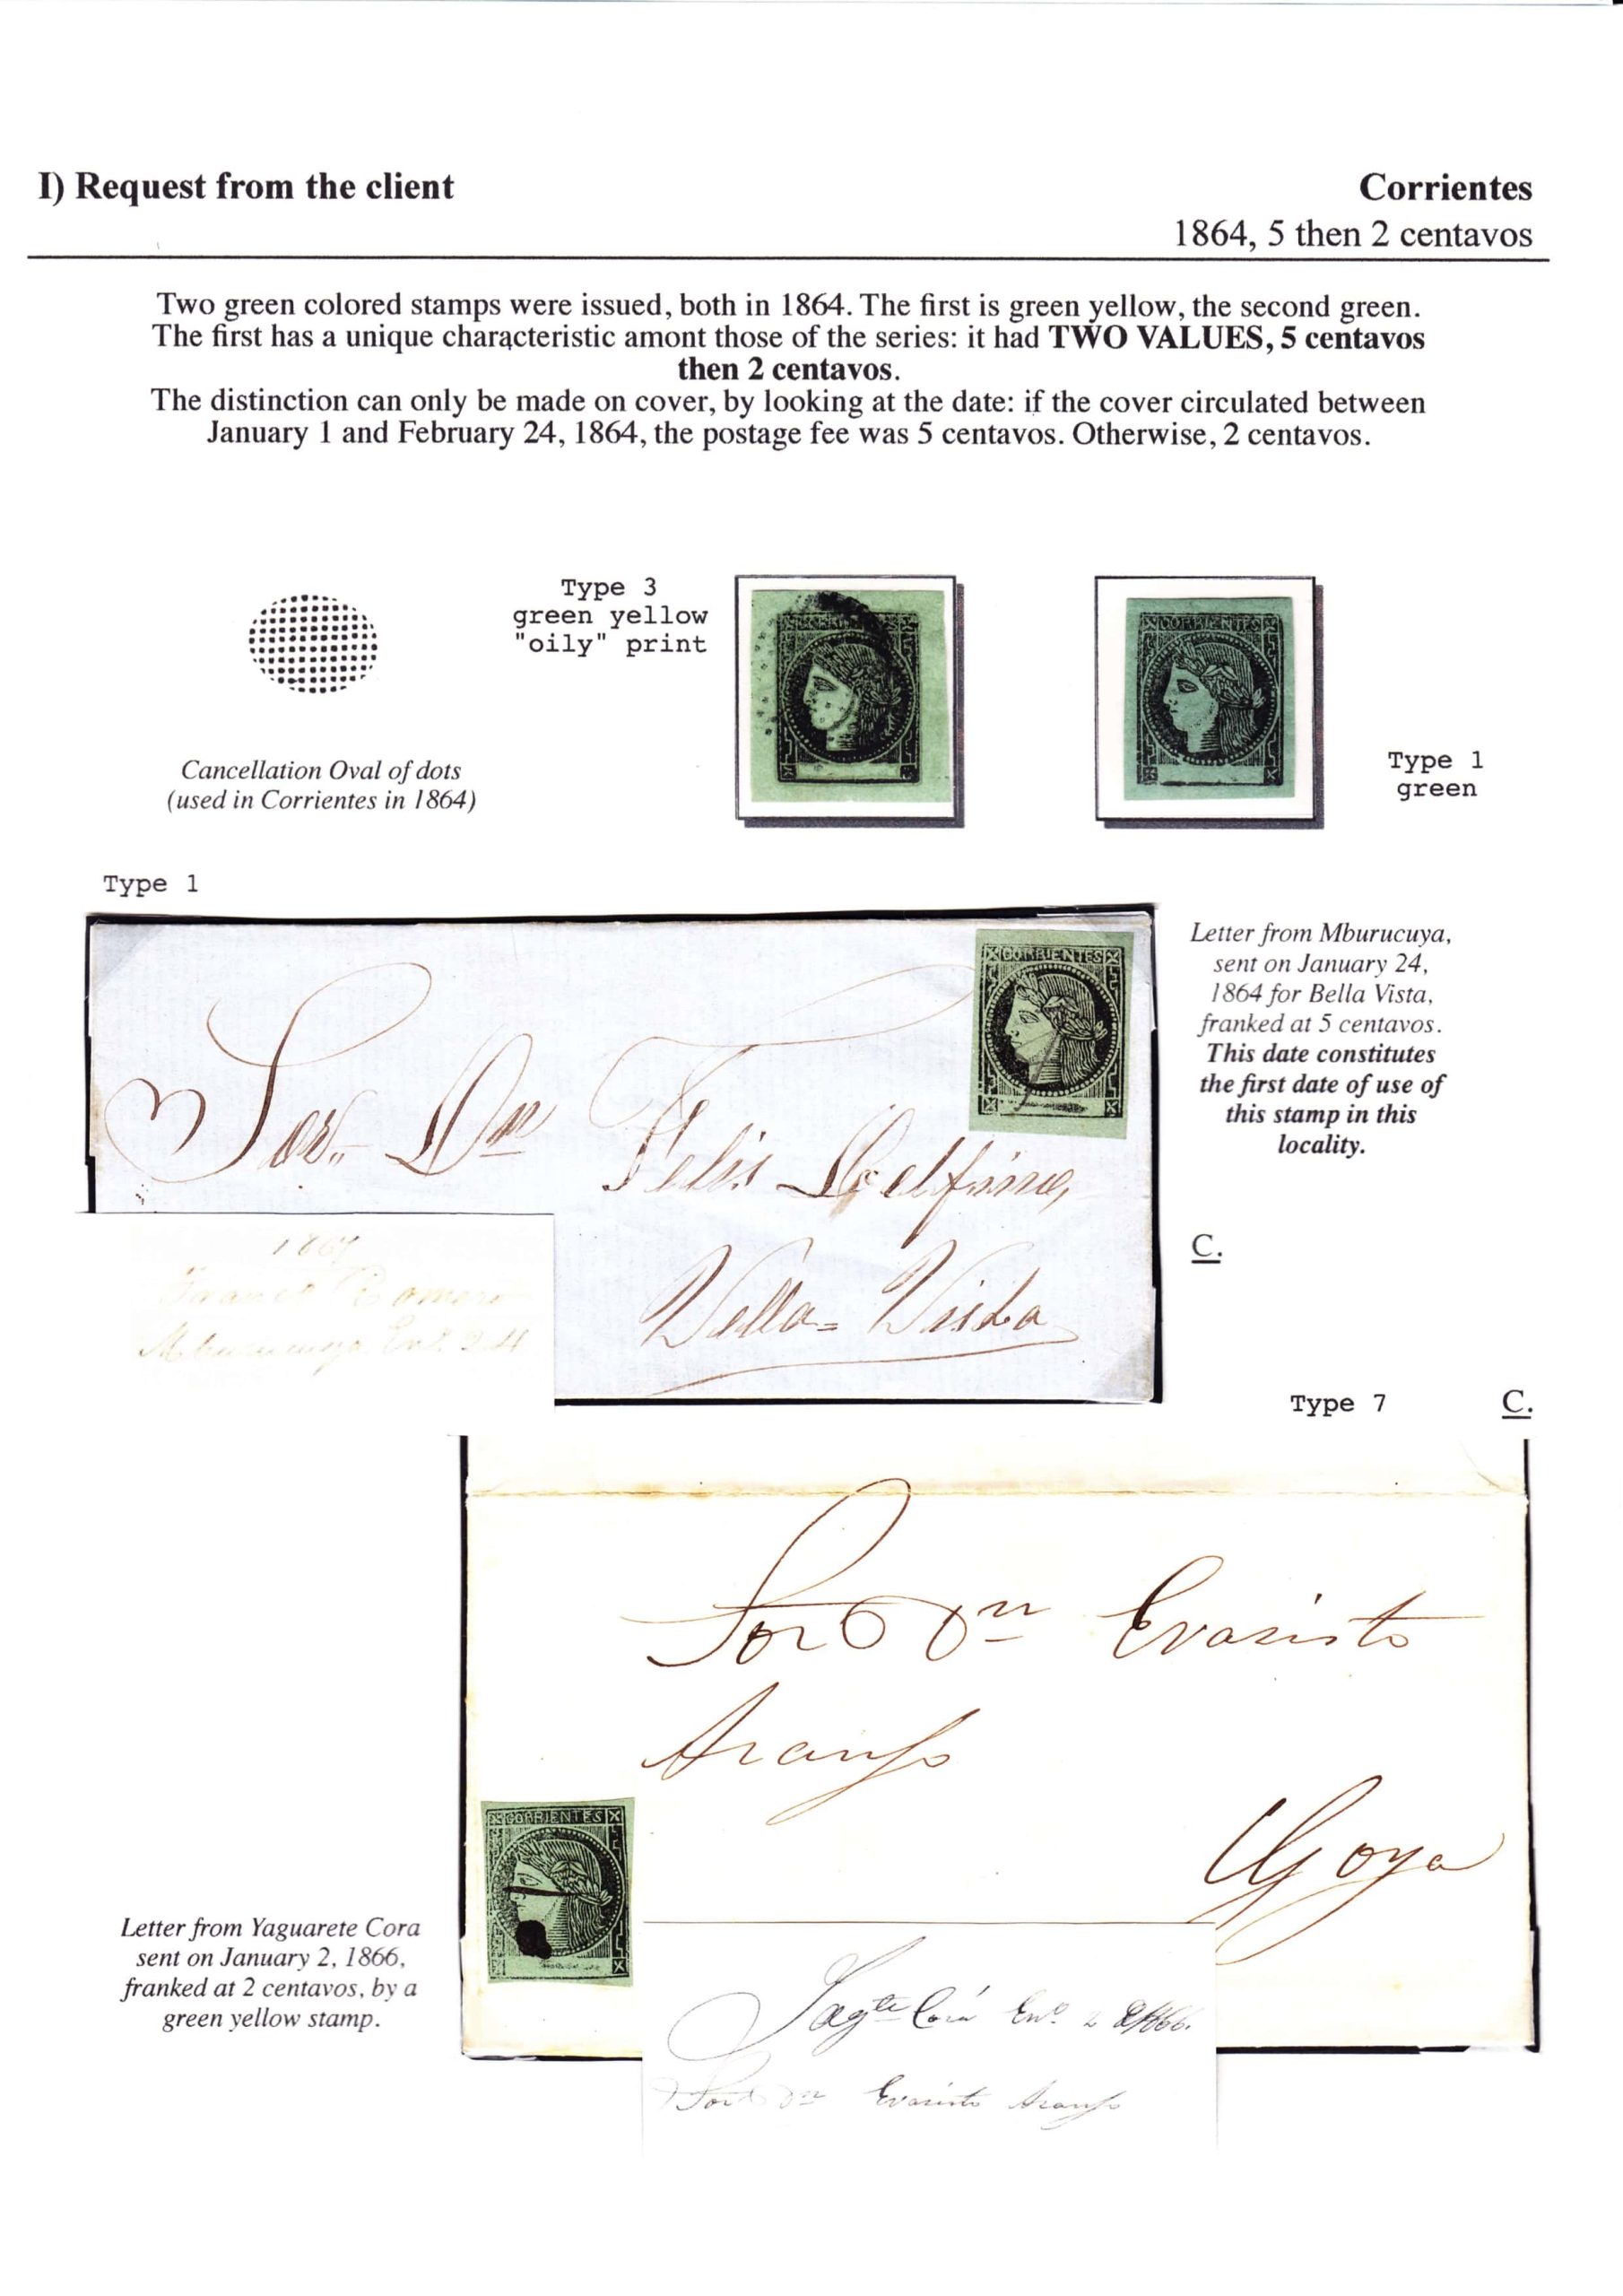 I) Request from the client
Corrientes
1864, 5 then 2 centavos
Two green colored stamps were issued, both in 1864. The first is green yellow, the second green.
The first has a unique characteristic amont those of the series: it had TWO VALUES, 5 centavos
then 2 centavos.
The distinction can only be made on cover, by looking at the date: if the cover circulated between
January 1 and February 24, 1864, the postage fee was 5 centavos. Otherwise, 2 centavos.
Type 3
green yellow
"oily" print
Cancellation Oval of dots
(used in Corrientes in 1864)
CORRIENTES
Type 1
green
Type 1
CORRIENTES
Letter from Mburucuya,
sent on January 24,
1864 for Bella Vista,
franked at 5 centavos.
This date constitutes
the first date of use of
this stamp in this
locality.
Sor. Dn Felis
Vella = Vista
Romero
Mburucuya En. 24
C.
Type 7
C.
Sor Dn Evaristo
Araujo
Goya
CORRIENTES
Letter from Yaguarete Cora
sent on January 2, 1866,
franked at 2 centavos, by a
green yellow stamp.
Yagte Corá Eno 2
Sor Dn Evaristo Araujo